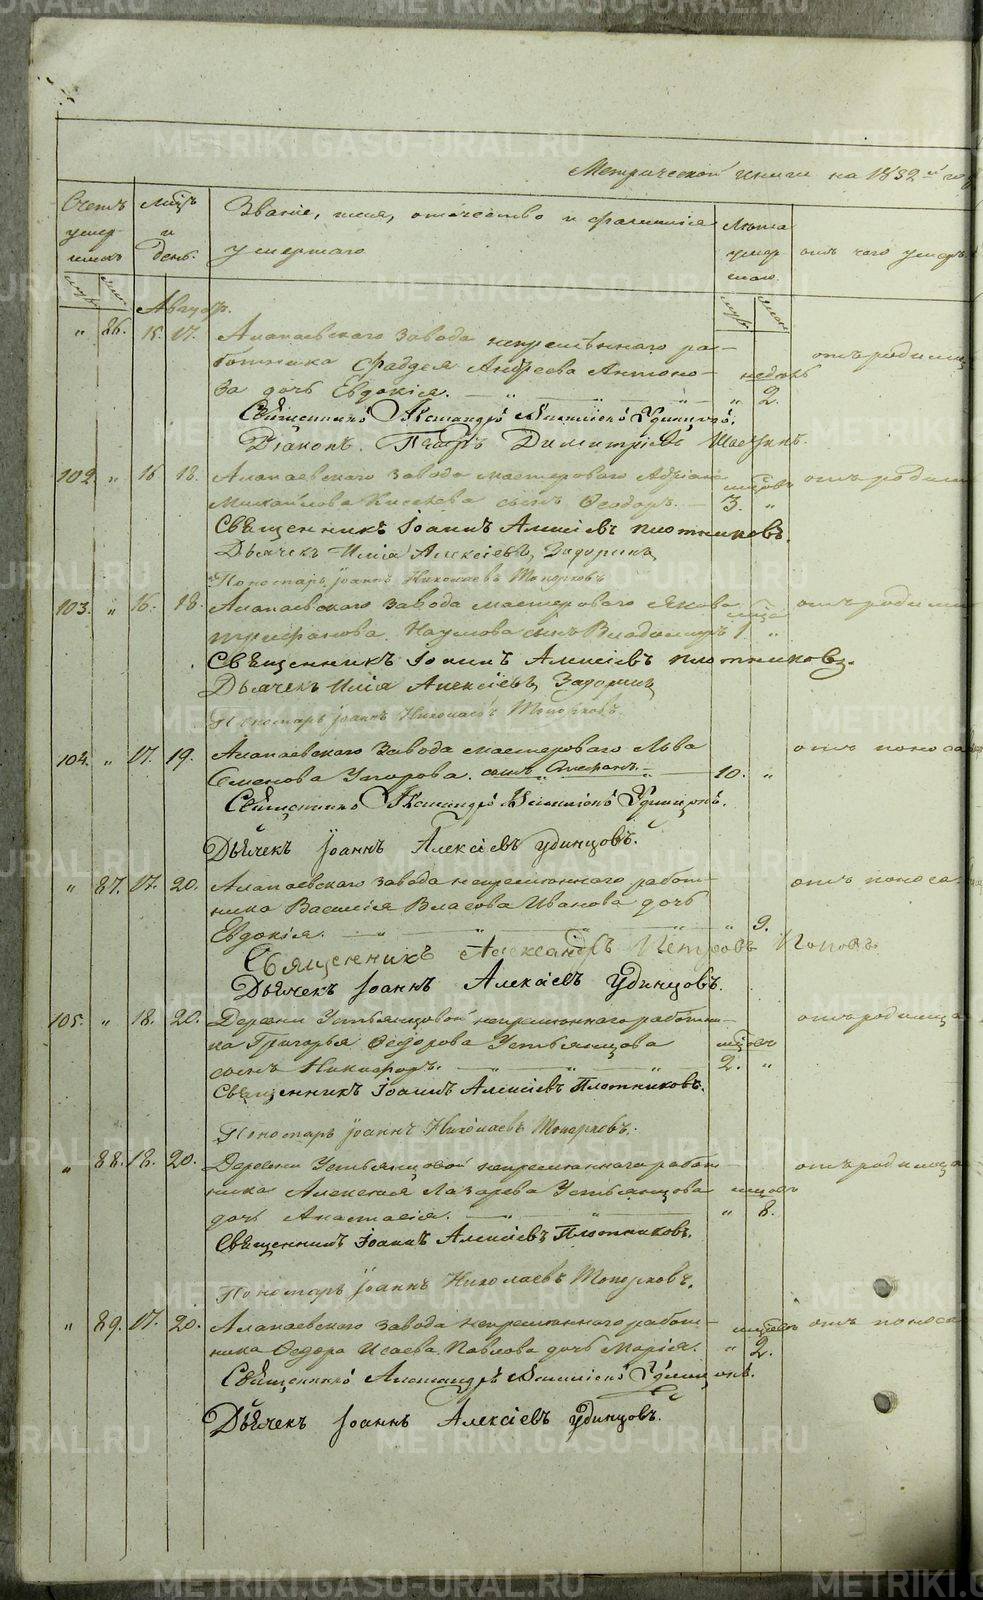 Метрической книги на 1832й год
Счетъ умершихъ
мсцъ и день.
Званіе, имя, отечество и фамилія умершаго
Лѣта умершаго.
отъ чего умеръ
муж. жен.
муж. жен.
Август.
" 86. 15. 17. Алапаевскаго завода непремѣннаго ра-
ботника Фаддея Андреева Антоно- недѣль отъ родимца
ва дочь Евдокія. — " — " — " — " 2.
Священникъ Александръ Удинцовъ.
Діаконъ Петръ Димитріевъ
102. " 16 18. Алапаевскаго завода мастероваго Адріана мсцовъ отъ родим
Михайлова Киселева сынъ Ѳеодоръ. — 3. "
Священникъ Іоаннъ Алексіевъ Плотниковъ.
Дьячекъ Илія Алексіевъ Задоринъ
Пономарь Іоаннъ Николаевъ Топорковъ
103. " 16. 18. Алапаевскаго завода мастероваго Якова отъ родим
Наумова сынъ Владимиръ 1. "
Священникъ Іоаннъ Алексіевъ Плотниковъ.
Дьячекъ Илія Алексіевъ Задоринъ
Пономарь Іоаннъ Николаевъ Топорковъ.
104. " 17. 19. Алапаевскаго завода мастероваго Льва отъ поноса
Семенова сынъ Стефанъ. — 10. "
Священникъ Александръ Удинцовъ.
Дьячекъ Іоаннъ Алексіевъ Удинцовъ.
" 87. 17. 20. Алапаевскаго завода непремѣннаго работ- отъ поноса
ника Василія Власова Иванова дочь
Евдокія. — " — " — " — " 9.
Священникъ Александръ Петровъ Поповъ.
Дьячекъ Іоаннъ Алексіевъ Удинцовъ.
105. " 18. 20. Деревни Устьянцовой непремѣннаго работни- отъ родимца
ка Григорья Ѳедорова Устьянцова мсцовъ
сынъ Никифоръ. — " — " — " 2. "
Священникъ Іоаннъ Алексіевъ Плотниковъ.
Пономарь Іоаннъ Николаевъ Топорковъ.
" 88. 18. 20. Деревни Устьянцовой непремѣннаго работ- отъ родимца
ника Алексея Лазарева Устьянцова мсцовъ
дочь Анастасія. — " — " 8.
Священникъ Іоаннъ Алексіевъ Плотниковъ.
Пономарь Іоаннъ Николаевъ Топорковъ.
" 89. 17. 20. Алапаевскаго завода непремѣннаго работ- мсцовъ отъ поноса
ника Ѳедора Исаева Павлова дочь Марія. " 2.
Священникъ Александръ Удинцовъ.
Дьячекъ Іоаннъ Алексіевъ Удинцовъ.
METRIKI.GASO-URAL.RU